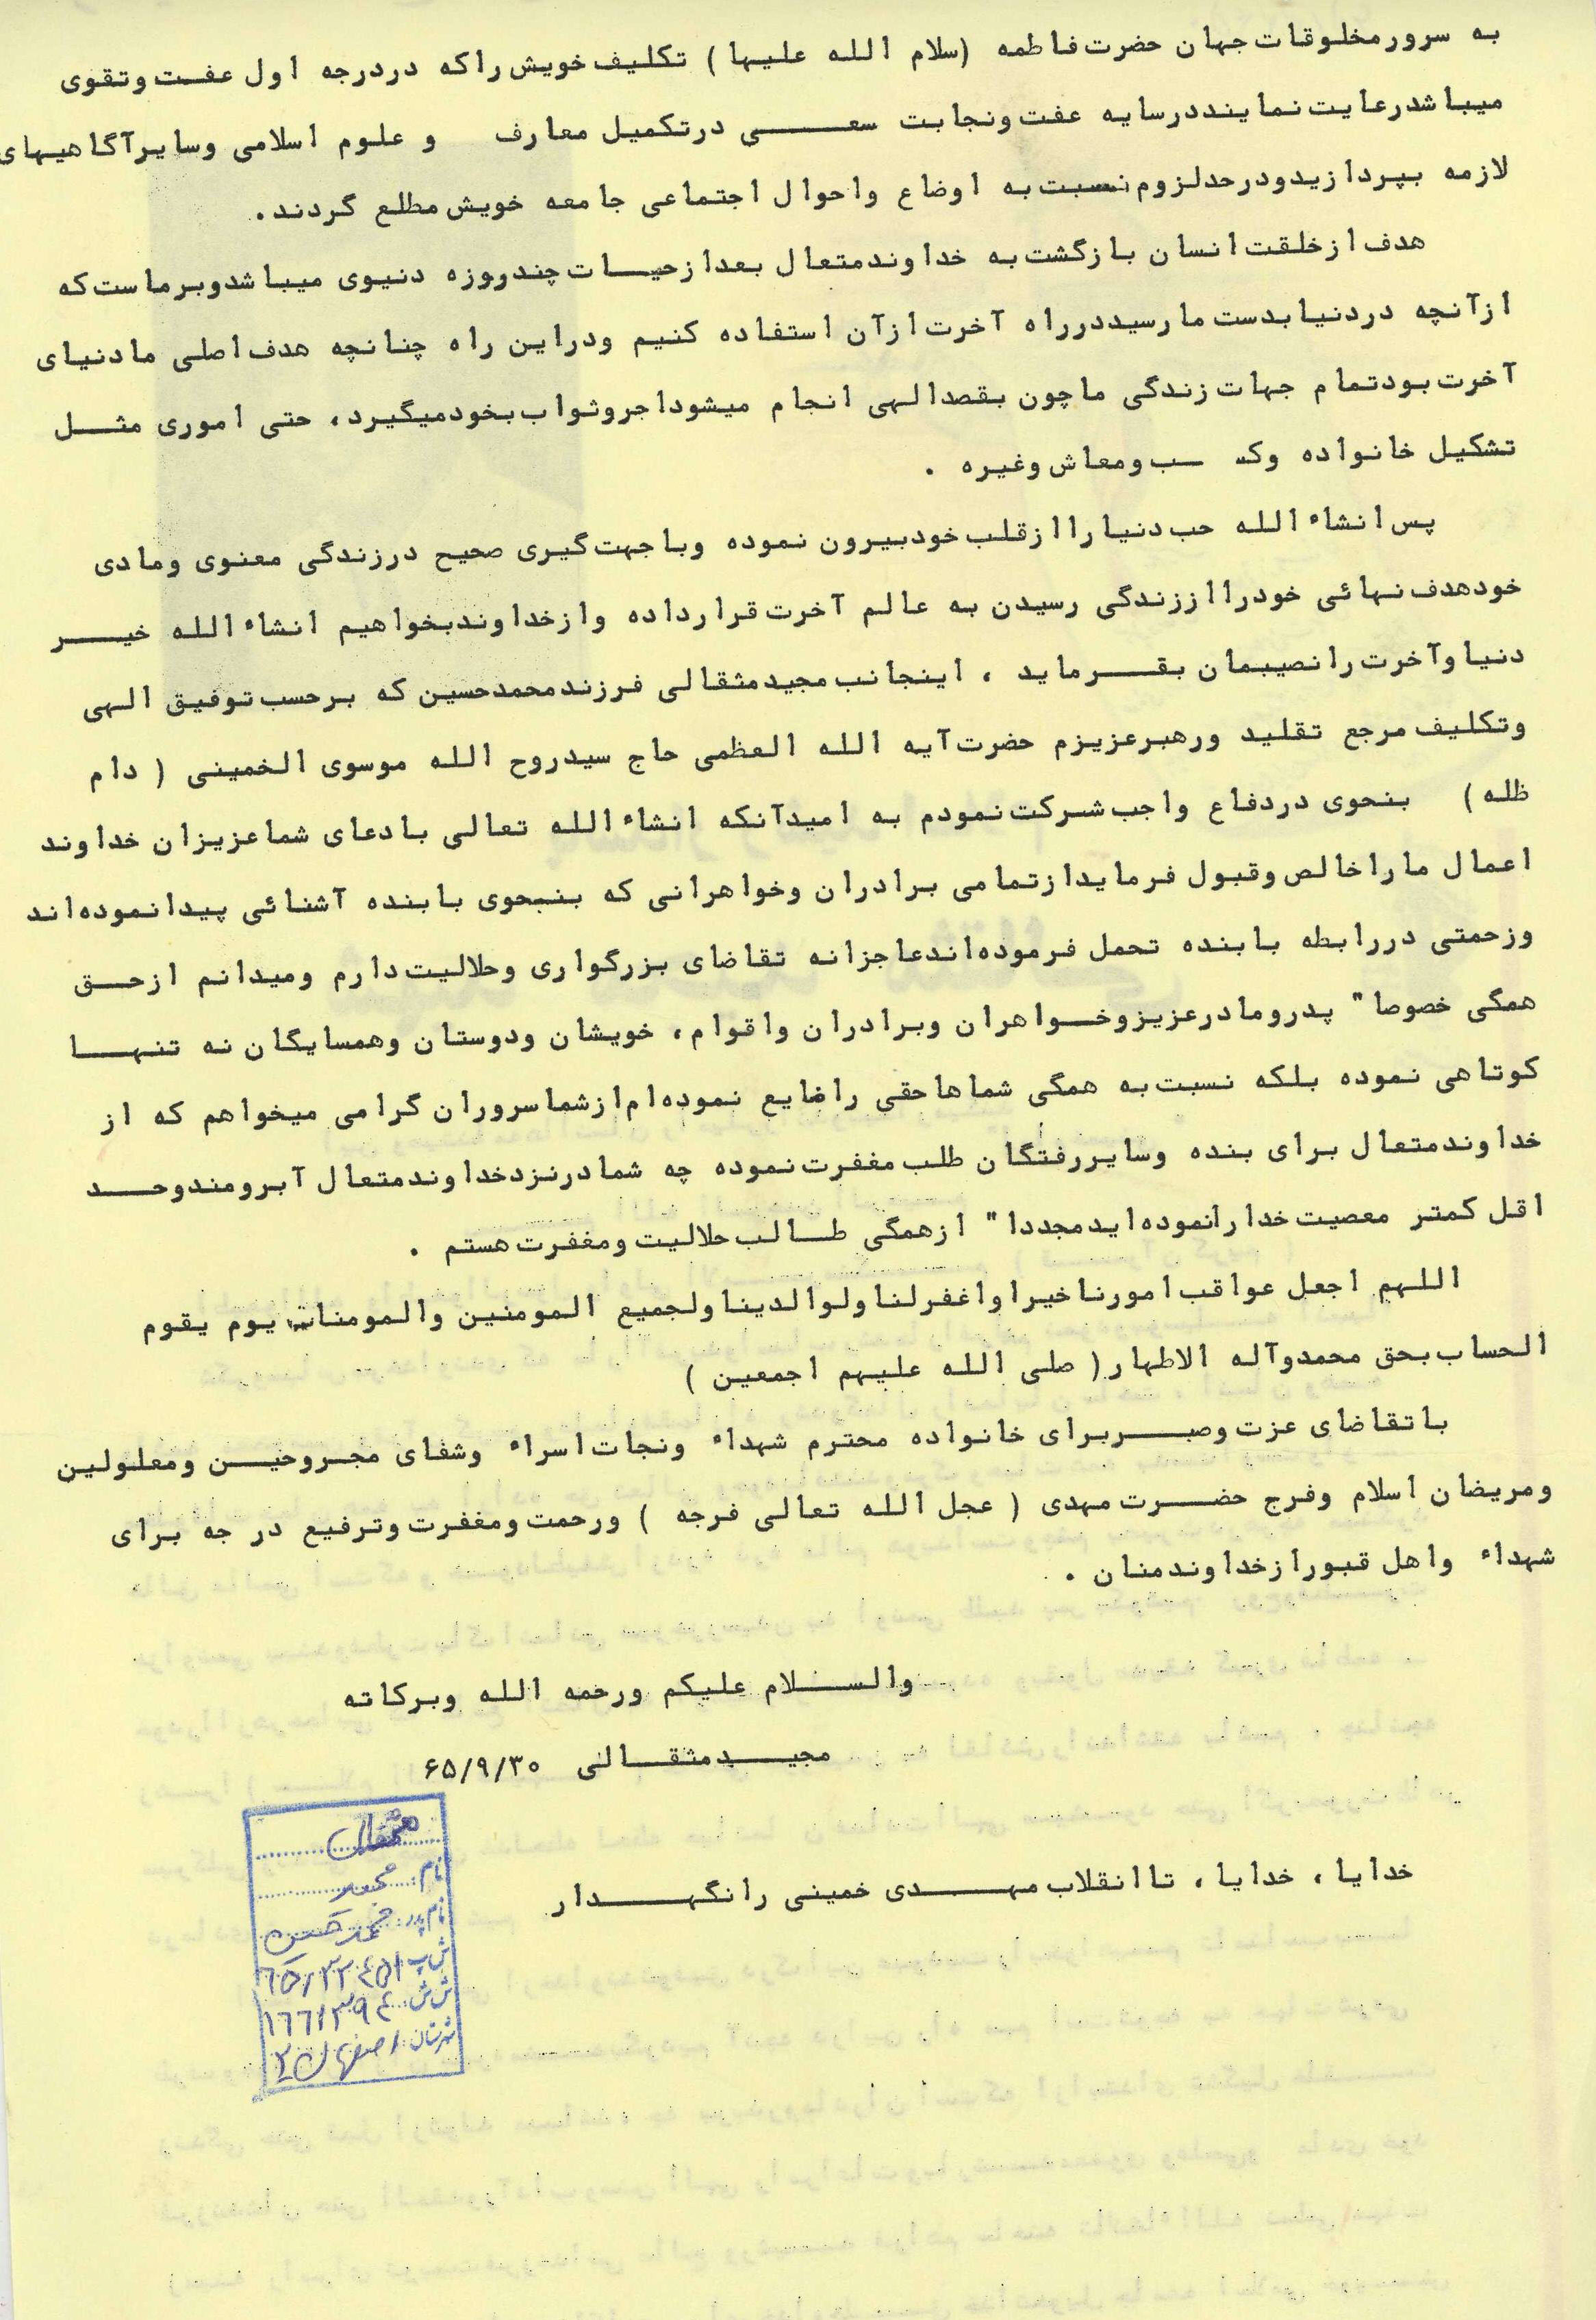 به سرور مخلوقات جهان حضرت فاطمه (سلام الله علیها) تکلیف خویش را که در درجه اول عفت و تقوی
میباشد رعایت نمایند در سایه عفت و نجابت سعی در تکمیل معارف و علوم اسلامی و سایر آگاهیهای
لازمه بپردازید و در حد لزوم نسبت به اوضاع و احوال اجتماعی جامعه خویش مطلع گردند.
هدف از خلقت انسان بازگشت به خداوند متعال بعد از حیات چند روزه دنیوی میباشد و بر ماست که
از آنچه در دنیا بدست ما رسید در راه آخرت از آن استفاده کنیم و در این راه چنانچه هدف اصلی ما دنیای
آخرت بود تمام جهات زندگی ما چون بقصد الهی انجام میشود اجر و ثواب بخود میگیرد، حتی اموری مثل
تشکیل خانواده و کسب و معاش و غیره .
پس انشاء الله حب دنیا را از قلب خود بیرون نموده و با جهت گیری صحیح در زندگی معنوی و مادی
خود هدف نهائی خود را از زندگی رسیدن به عالم آخرت قرار داده و از خداوند بخواهیم انشاء الله خیر
دنیا و آخرت را نصیبمان بقرماید ، اینجانب مجید مثقالی فرزند محمد حسین که بر حسب توفیق الهی
و تکلیف مرجع تقلید و رهبر عزیزم حضرت آیه الله العظمی حاج سید روح الله موسوی الخمینی ( دام
ظله ) بنحوی در دفاع واجب شرکت نمودم به امید آنکه انشاء الله تعالی با دعای شما عزیزان خداوند
اعمال ما را خالص و قبول فرماید از تمامی برادران و خواهرانی که بنحوی با بنده آشنائی پیدا نموده‌اند
و زحمتی در رابطه با بنده تحمل فرموده‌اند عاجزانه تقاضای بزرگواری و حلالیت دارم و میدانم از حق
همگی خصوصا " پدر و مادر عزیز و خواهران و برادران و اقوام، خویشان و دوستان و همسایگان نه تنها
کوتاهی نموده بلکه نسبت به همگی شماها حقی را ضایع نموده‌ام از شما سروران گرامی میخواهم که از
خداوند متعال برای بنده و سایر رفتگان طلب مغفرت نموده چه شما در نزد خداوند متعال آبرومند و حد
اقل کمتر معصیت خدا را نموده‌اید مجددا " از همگی طالب حلالیت و مغفرت هستم .
اللهم اجعل عواقب امورنا خیرا و اغفرلنا ولوالدینا ولجمیع المومنین والمومنات یوم یقوم
الحساب بحق محمد و آله الاطهار ( صلی الله علیهم اجمعین )
با تقاضای عزت و صبر برای خانواده محترم شهداء و نجات اسراء و شفای مجروحین و معلولین
و مریضان اسلام و فرج حضرت مهدی ( عجل الله تعالی فرجه ) و رحمت و مغفرت و ترفیع در جه برای
شهداء و اهل قبور از خداوند منان .
والسلام علیکم ورحمه الله وبرکاته
مجید مثقالی ۶۵/۹/۳۰
خدایا ، خدایا ، تا انقلاب مهدی خمینی را نگهدار
مثقالی
نام: مجید
نام پدر: محمد حسین
ش پ
ش ش:
شهرستان: اصفهان